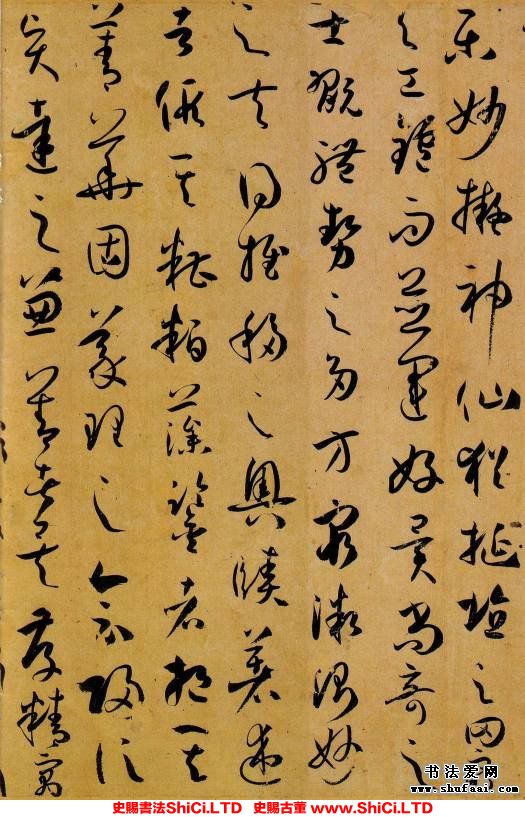 樂妙擬神仙猶埏埴之罔窮
與工鑪而並運好異尚奇之
士翫體勢之多方窮微測妙
之夫得推移之奧賾著述
者假其糟粕藻鑒者挹其
菁華固義理之會歸信
賢達之兼善者矣存精寓
书法爱网
www.shufaai.com
史賜書法ShiCi.LTD 史賜古董 www.ShiCi.LTD